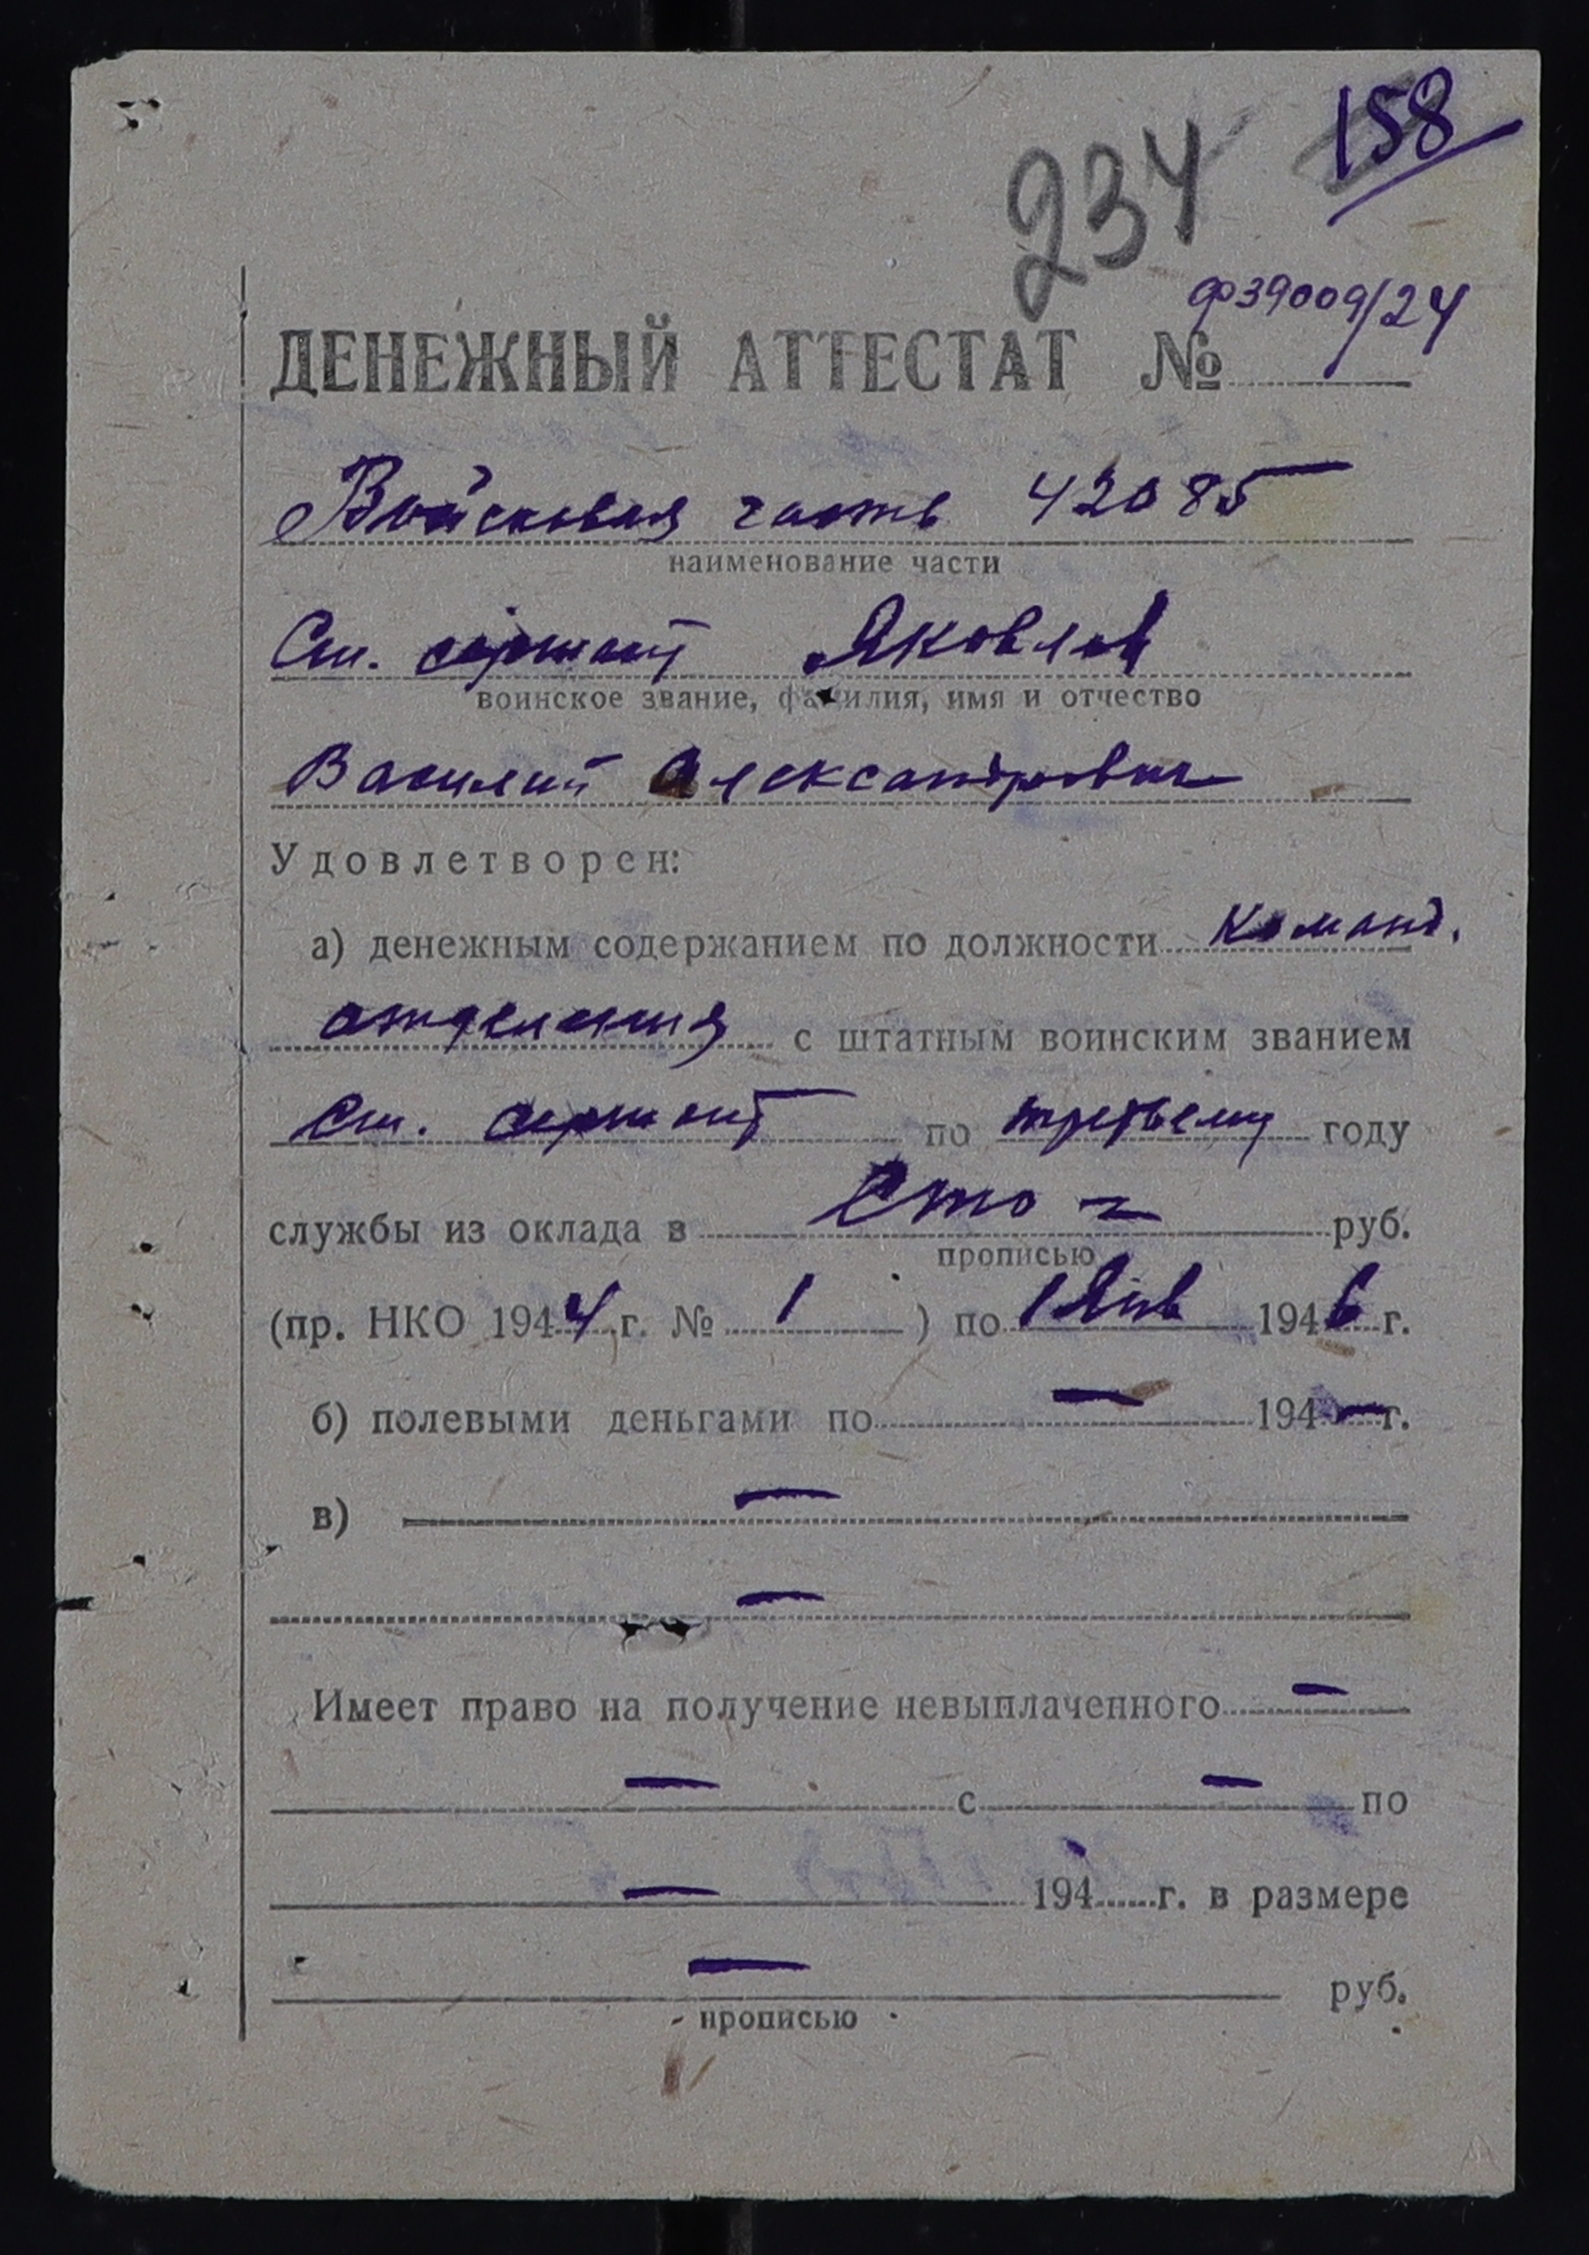 158
234
ф39009/24
ДЕНЕЖНЫЙ АТТЕСТАТ №
Войсковая часть 42085
наименование части
Ст. сержант Яковлев
воинское звание, фамилия, имя и отчество
Василий Александрович
Удовлетворен:
а) денежным содержанием по должности команд.
отделения с штатным воинским званием
Ст. сержант по третьему году
службы из оклада в Сто = руб.
прописью
(пр. НКО 1944 г. № 1 ) по 1 Янв 1946 г.
б) полевыми деньгами по — 194— г.
в) —
—
Имеет право на получение невыплаченного —
— с — по
— 194 г. в размере
— руб.
прописью